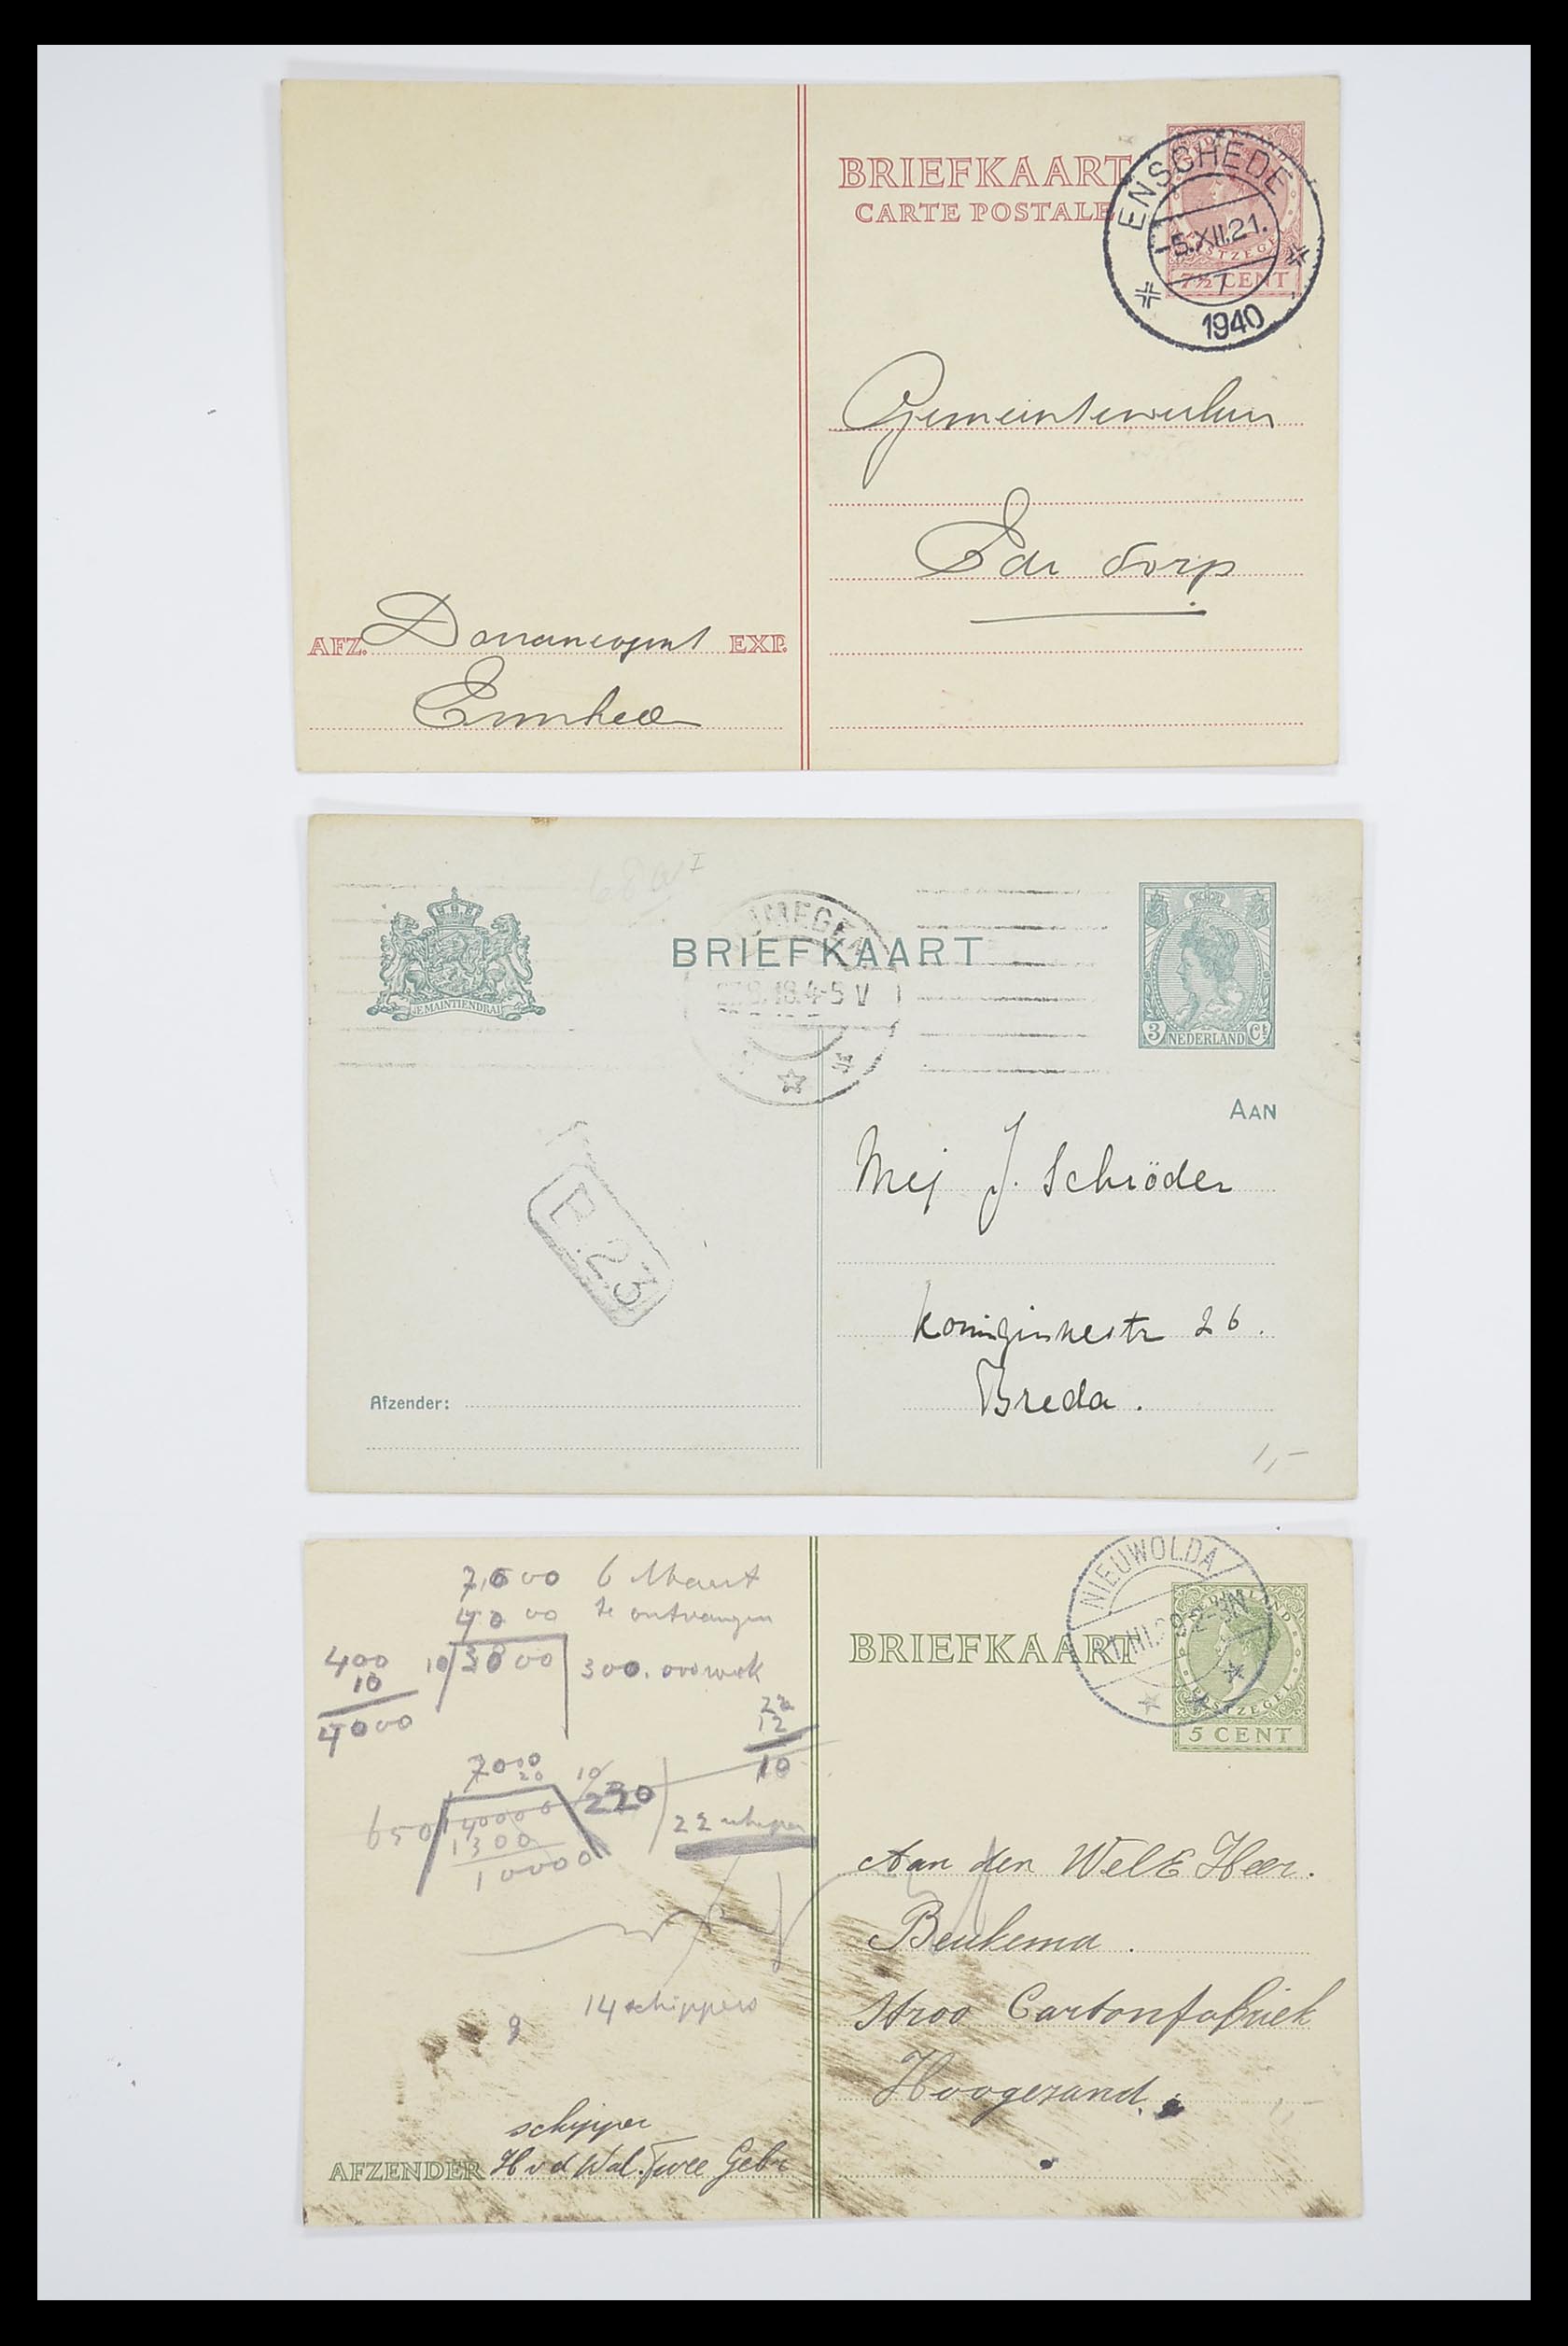 BRIEFKAART
CARTE POSTALE
ENSCHEDE
-5.XII.21.
7
1940
7½ CENT
Ede dorp
AFZ.
EXP.
68a I
JE MAINTIENDRAI
BRIEFKAART
18.4-5 V
3 Ct
NEDERLAND
AAN
Mej J. Schröder
Koninginnestr 26.
Breda.
B.23
Afzender:
1,-
7,000 6 Maart
40 00 te ontvangen
400
10
4000
10 3000 300.
22
12
10
7000
20
10
220
650 14000 0
1300
10000
22 schippers
14 schippers
NIEUWOLDA
BRIEFKAART
NEDERLAND
POSTZEGEL
5 CENT
Aan den WelE Heer.
Beukema.
Stroo Cartonfabriek
Hoogezand.
schipper
AFZENDER H v d Wal. Twee Gebr